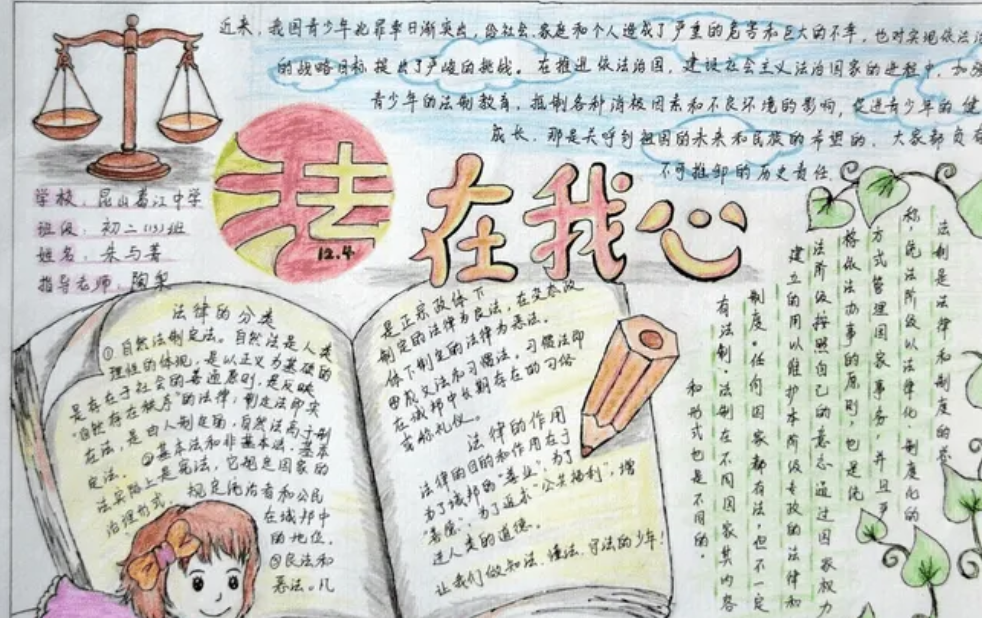 近来，我国青少年犯罪率日渐突出，给社会、家庭和个人造成了严重的危害和巨大的不幸，也对实现依法治
的战略目标提出了严峻的挑战。在推进依法治国，建设社会主义法治国家的进程中，加强
青少年的法制教育，抵制各种消极因素和不良环境的影响，促进青少年的健
成长，那是关呼到祖国的未来和民族的希望的，大家都负有
不可推卸的历史责任。
学校：昆山葛江中学
班级：初二(13)班
姓名：朱与菁
指导老师：陶梨
法在我心
12.4
法律的分类
①自然法制定法。自然法是人类
理性的体现，是以正义为基础的
是存在于社会的普遍原则，是反映
"自然存在秩序"的法律；制定法即实
在法，是由人制定的，自然法高于制
定法。②基本法和非基本法，基本
法实际上是宪法，它规定国家的
治理形式，规定统治者和公民
在城邦中
的地位。
③良法和
恶法。凡
是正宗政体下
制定的法律为良法，在变态政
体下制定的法律为恶法。
④成文法和习惯法。习惯法即
在城邦中长期存在的习俗
宗教礼仪。
法律的作用
法律的目的和作用在于
为了城邦的"善业"，为了
"善德"，为了追求"公共福利"，增
进人类的道德。
让我们做知法、懂法、守法的少年！
法制是法律和制度的总
称，统治阶级以法律化、制度化的
方式管理国家事务，并且严
格依法办事的原则，也是统
治阶级按照自己的意志通过国家权力
建立的用以维护本阶级专政的法律和
制度。任何国家都有法，但不一定
有法制。法制在不同国家其内容
和形式也是不同的。